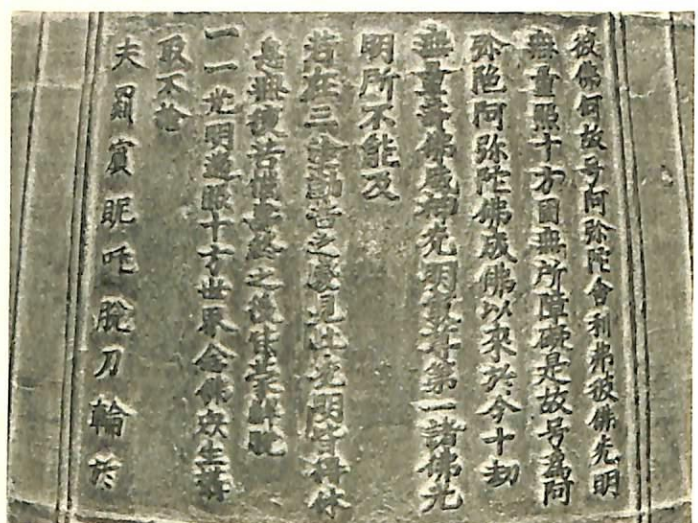 彼佛何故号阿弥陀舍利弗彼佛光明
無量照十方國無所障礙是故号爲阿
弥陀阿弥陀佛成佛以来於今十劫
無量壽佛威神光明最尊第一諸佛光
明所不能及
若在三塗勤苦之處見此光明皆得休
息無復苦惱壽終之後皆蒙解脱
一一光明遍照十方世界念佛衆生攝
取不捨
夫罽賓昵吒脱刀輪於